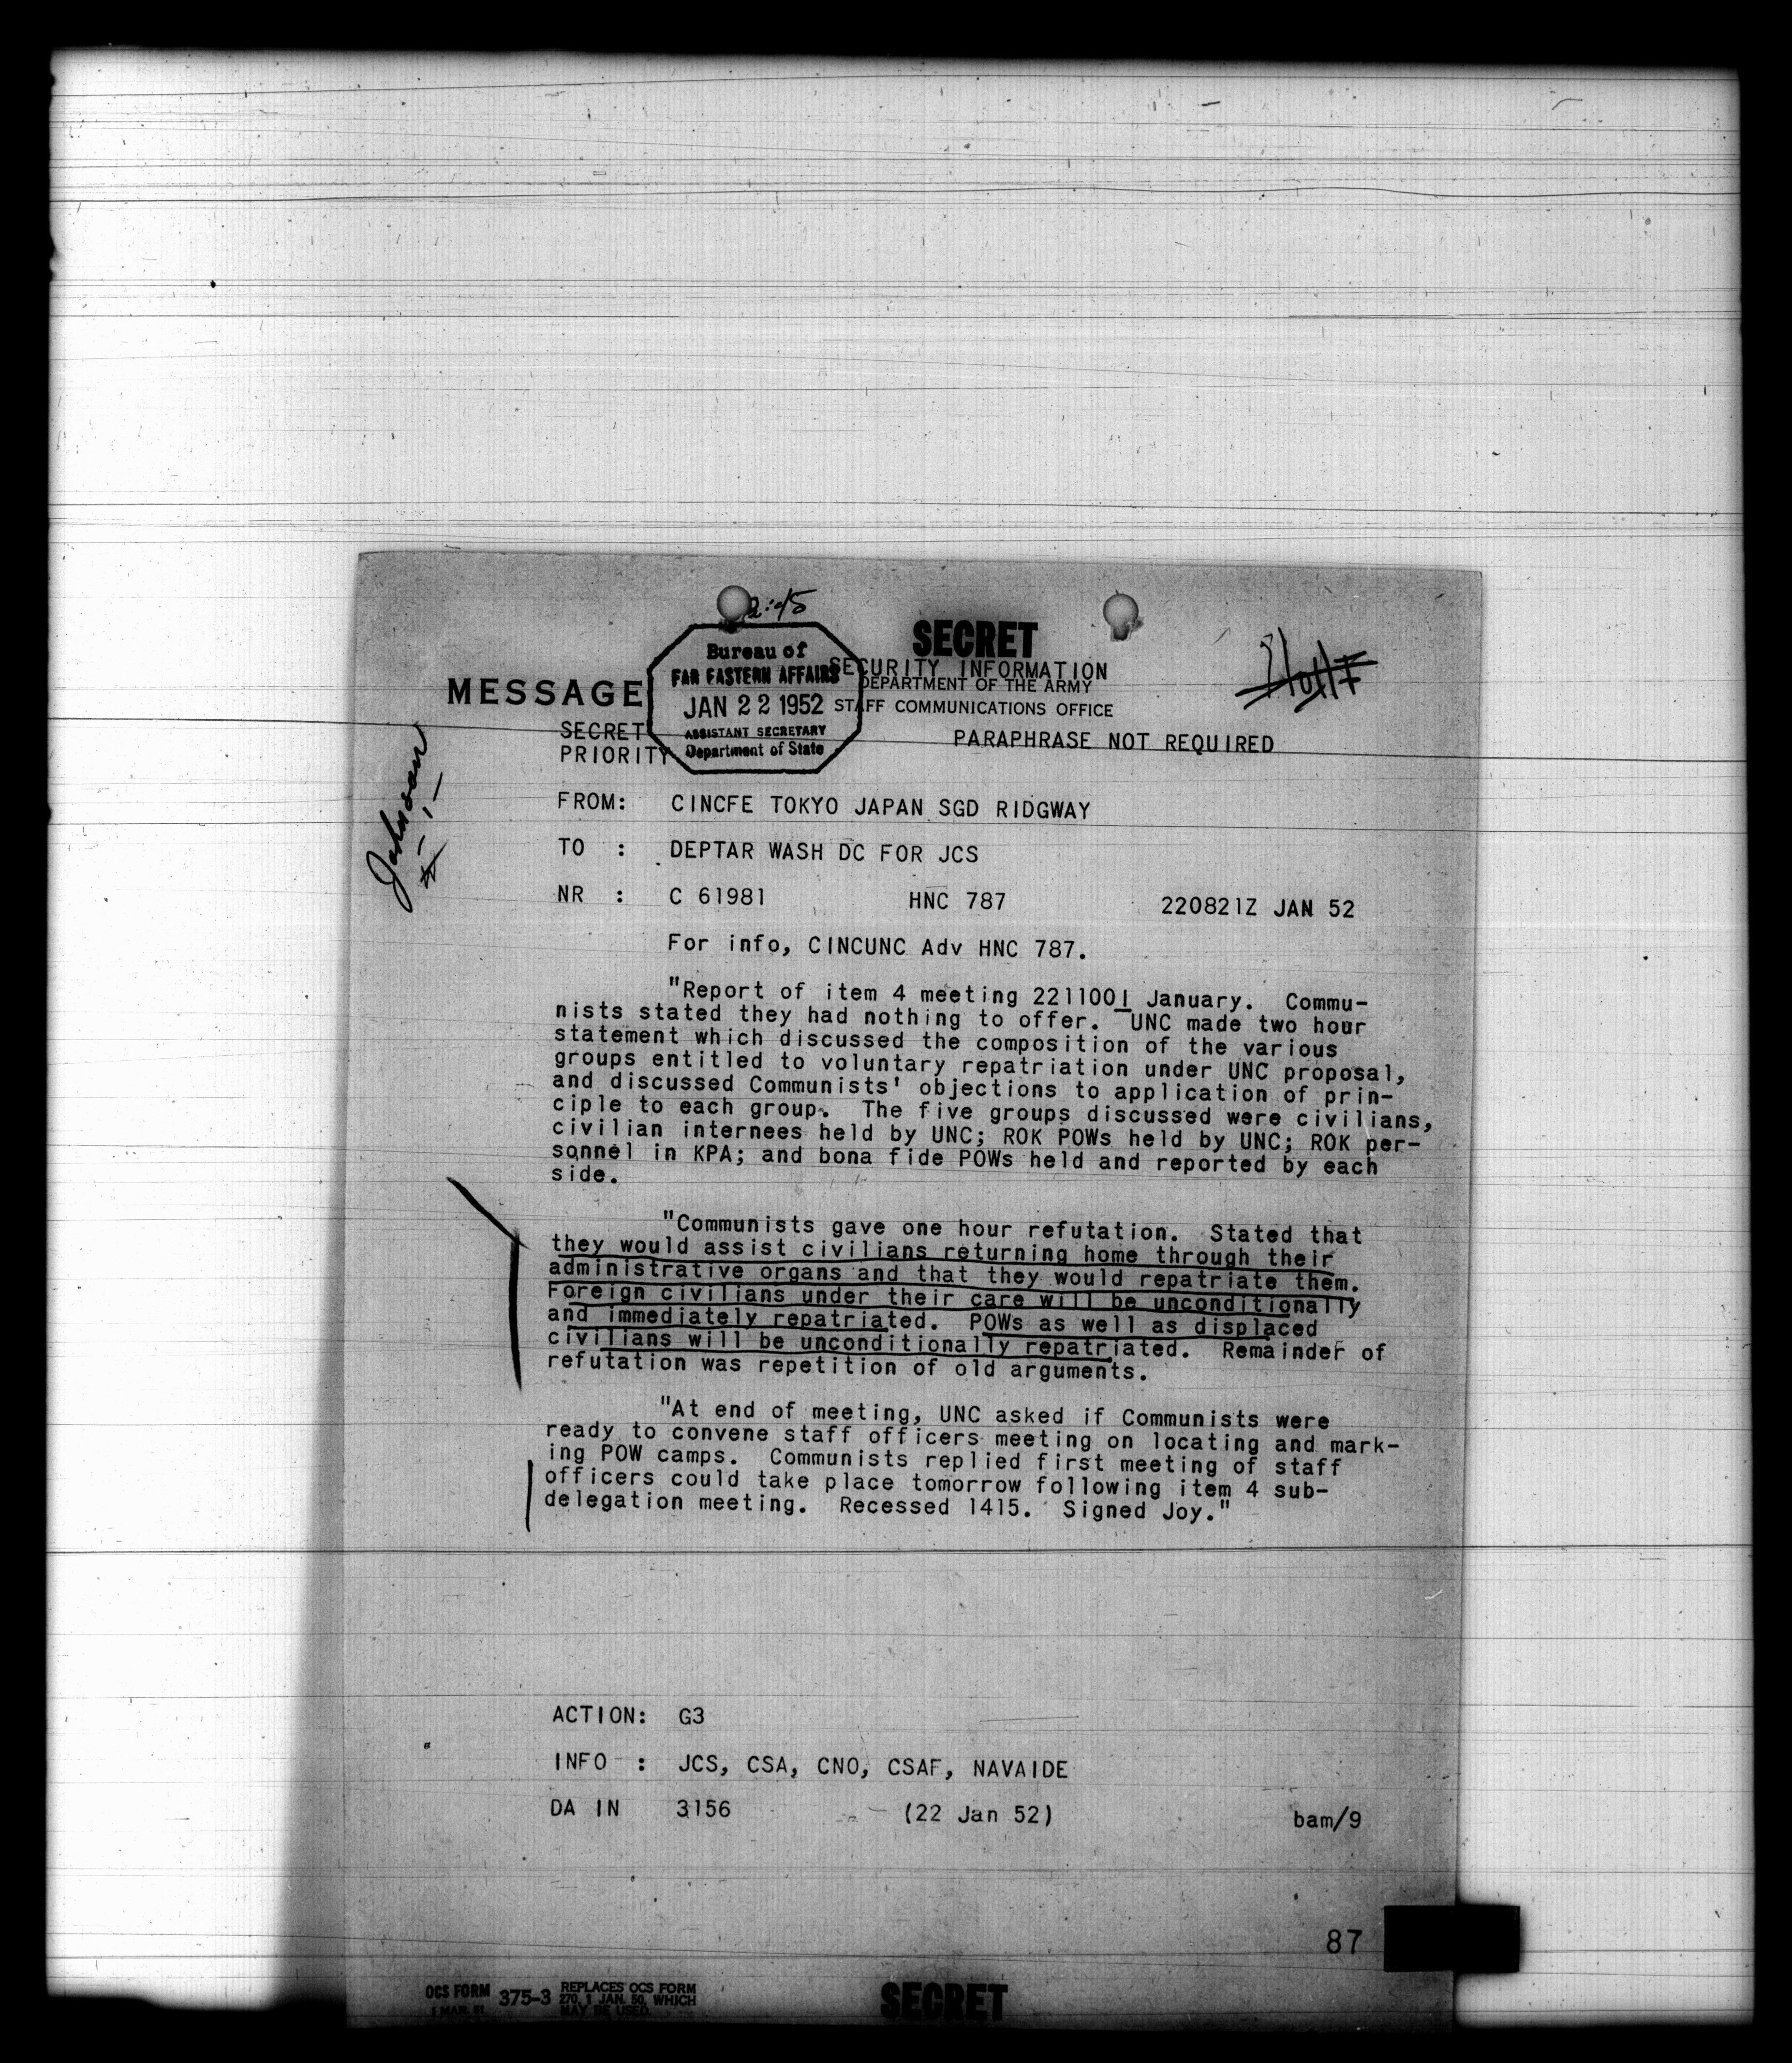 2:45
SECRET
SECURITY INFORMATION
DEPARTMENT OF THE ARMY
STAFF COMMUNICATIONS OFFICE
MESSAGE
Bureau of
FAR EASTERN AFFAIRS
JAN 22 1952
ASSISTANT SECRETARY
Department of State
SECRET
PRIORITY
PARAPHRASE NOT REQUIRED
Johnson
FROM: CINCFE TOKYO JAPAN SGD RIDGWAY
TO : DEPTAR WASH DC FOR JCS
NR : C 61981 HNC 787 220821Z JAN 52
For info, CINCUNC Adv HNC 787.
"Report of item 4 meeting 221100I January. Commu-
nists stated they had nothing to offer. UNC made two hour
statement which discussed the composition of the various
groups entitled to voluntary repatriation under UNC proposal,
and discussed Communists' objections to application of prin-
ciple to each group. The five groups discussed were civilians,
civilian internees held by UNC; ROK POWs held by UNC; ROK per-
sonnel in KPA; and bona fide POWs held and reported by each
side.
"Communists gave one hour refutation. Stated that
they would assist civilians returning home through their
administrative organs and that they would repatriate them.
Foreign civilians under their care will be unconditionally
and immediately repatriated. POWs as well as displaced
civilians will be unconditionally repatriated. Remainder of
refutation was repetition of old arguments.
"At end of meeting, UNC asked if Communists were
ready to convene staff officers meeting on locating and mark-
ing POW camps. Communists replied first meeting of staff
officers could take place tomorrow following item 4 sub-
delegation meeting. Recessed 1415. Signed Joy."
ACTION: G3
INFO : JCS, CSA, CNO, CSAF, NAVAIDE
DA IN 3156 (22 Jan 52) bam/9
87
OCS FORM 375-3 REPLACES OCS FORM
1 MAR. 51 270, 1 JAN. 50, WHICH
MAY BE USED.
SECRET